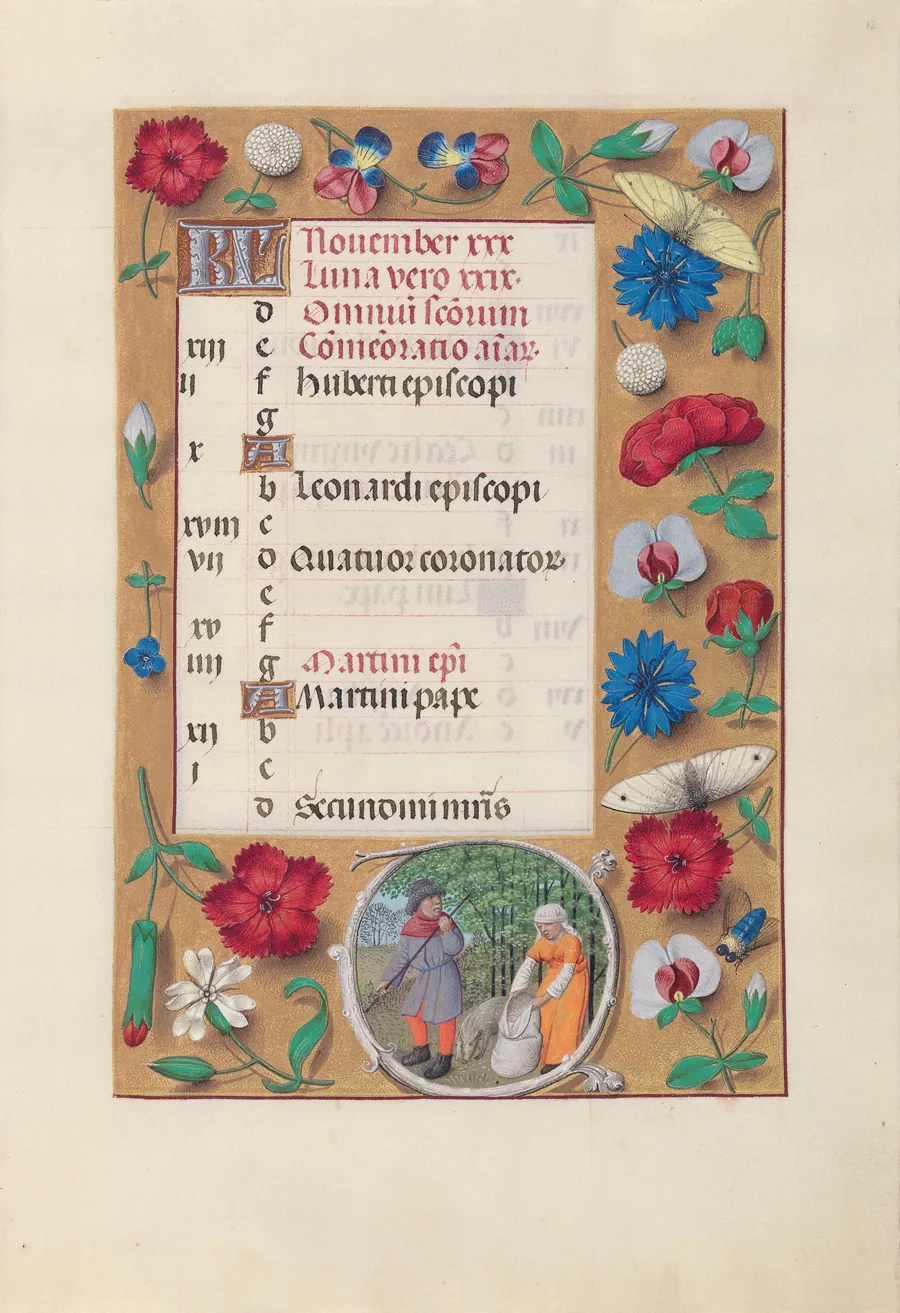 12
KL Nouember xxx
Luna vero xxix.
d Omniu᷑ scõrum
xiij e Cõmẽoratio aı̃aꝝ.
ij f huberti episcopi
g
x A
b Leonardi episcopi
xviij c
vij d Quatuor coronatoꝝ
e
xv f
iiij g Martini epı̃
A Martini pape
xij b
j c
d Secundini mr̃is